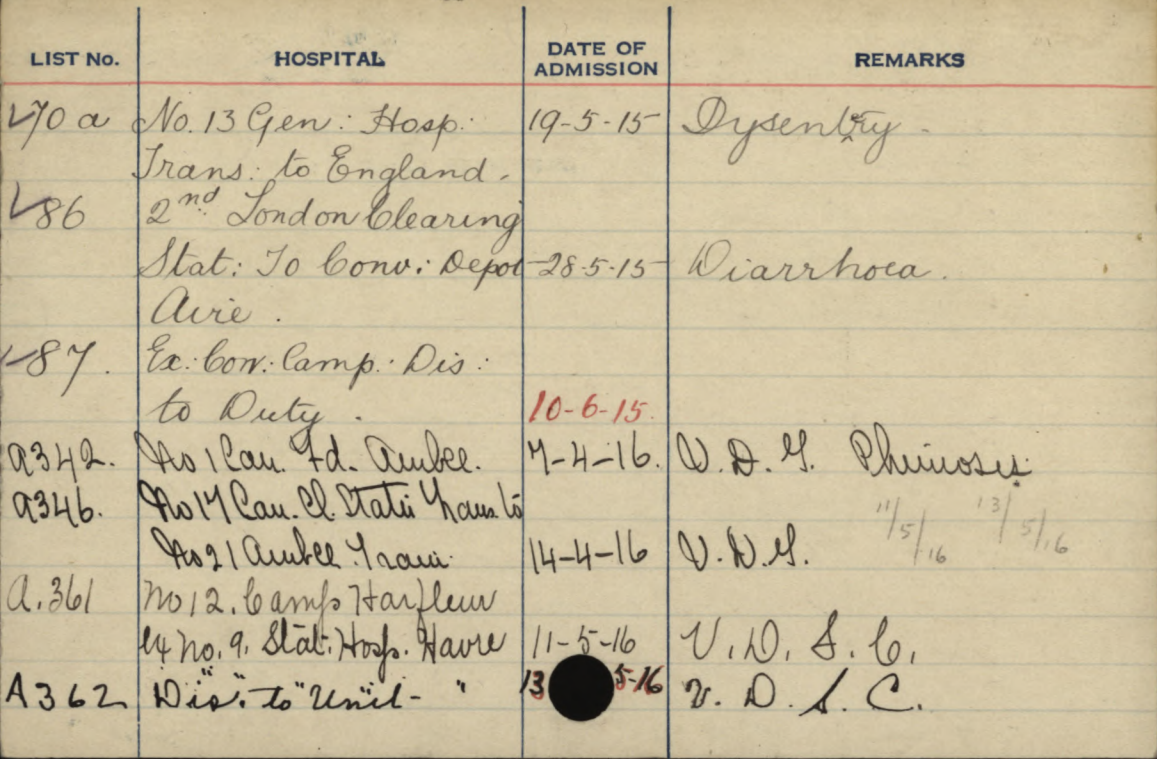 LIST No. HOSPITAL DATE OF ADMISSION REMARKS
70 a No. 13 Gen: Hosp: 19-5-15 Dysentry -
Trans: to England -
86 2nd London Clearing
Stat: To Conv: Depot 28-5-15 Diarrhoea.
Aire.
87. Ex: Con: Camp. Dis:
to Duty. 10-6-15.
A342. No 1 Can. Fd. Ambce. 7-4-16. V.D.G. Phimosis.
A346. No 17 Can. Cl. Statn Trans to 11/5/16 13/5/16
No 21 Ambce. Train. 14-4-16 V.D.G.
A.361 No 12. Camp Harfleur
No. 9. Stat. Hosp. Havre 11-5-16 V.D.S.C.
A362 Dis. to Unit - " 13 5-16 V.D.S.C.